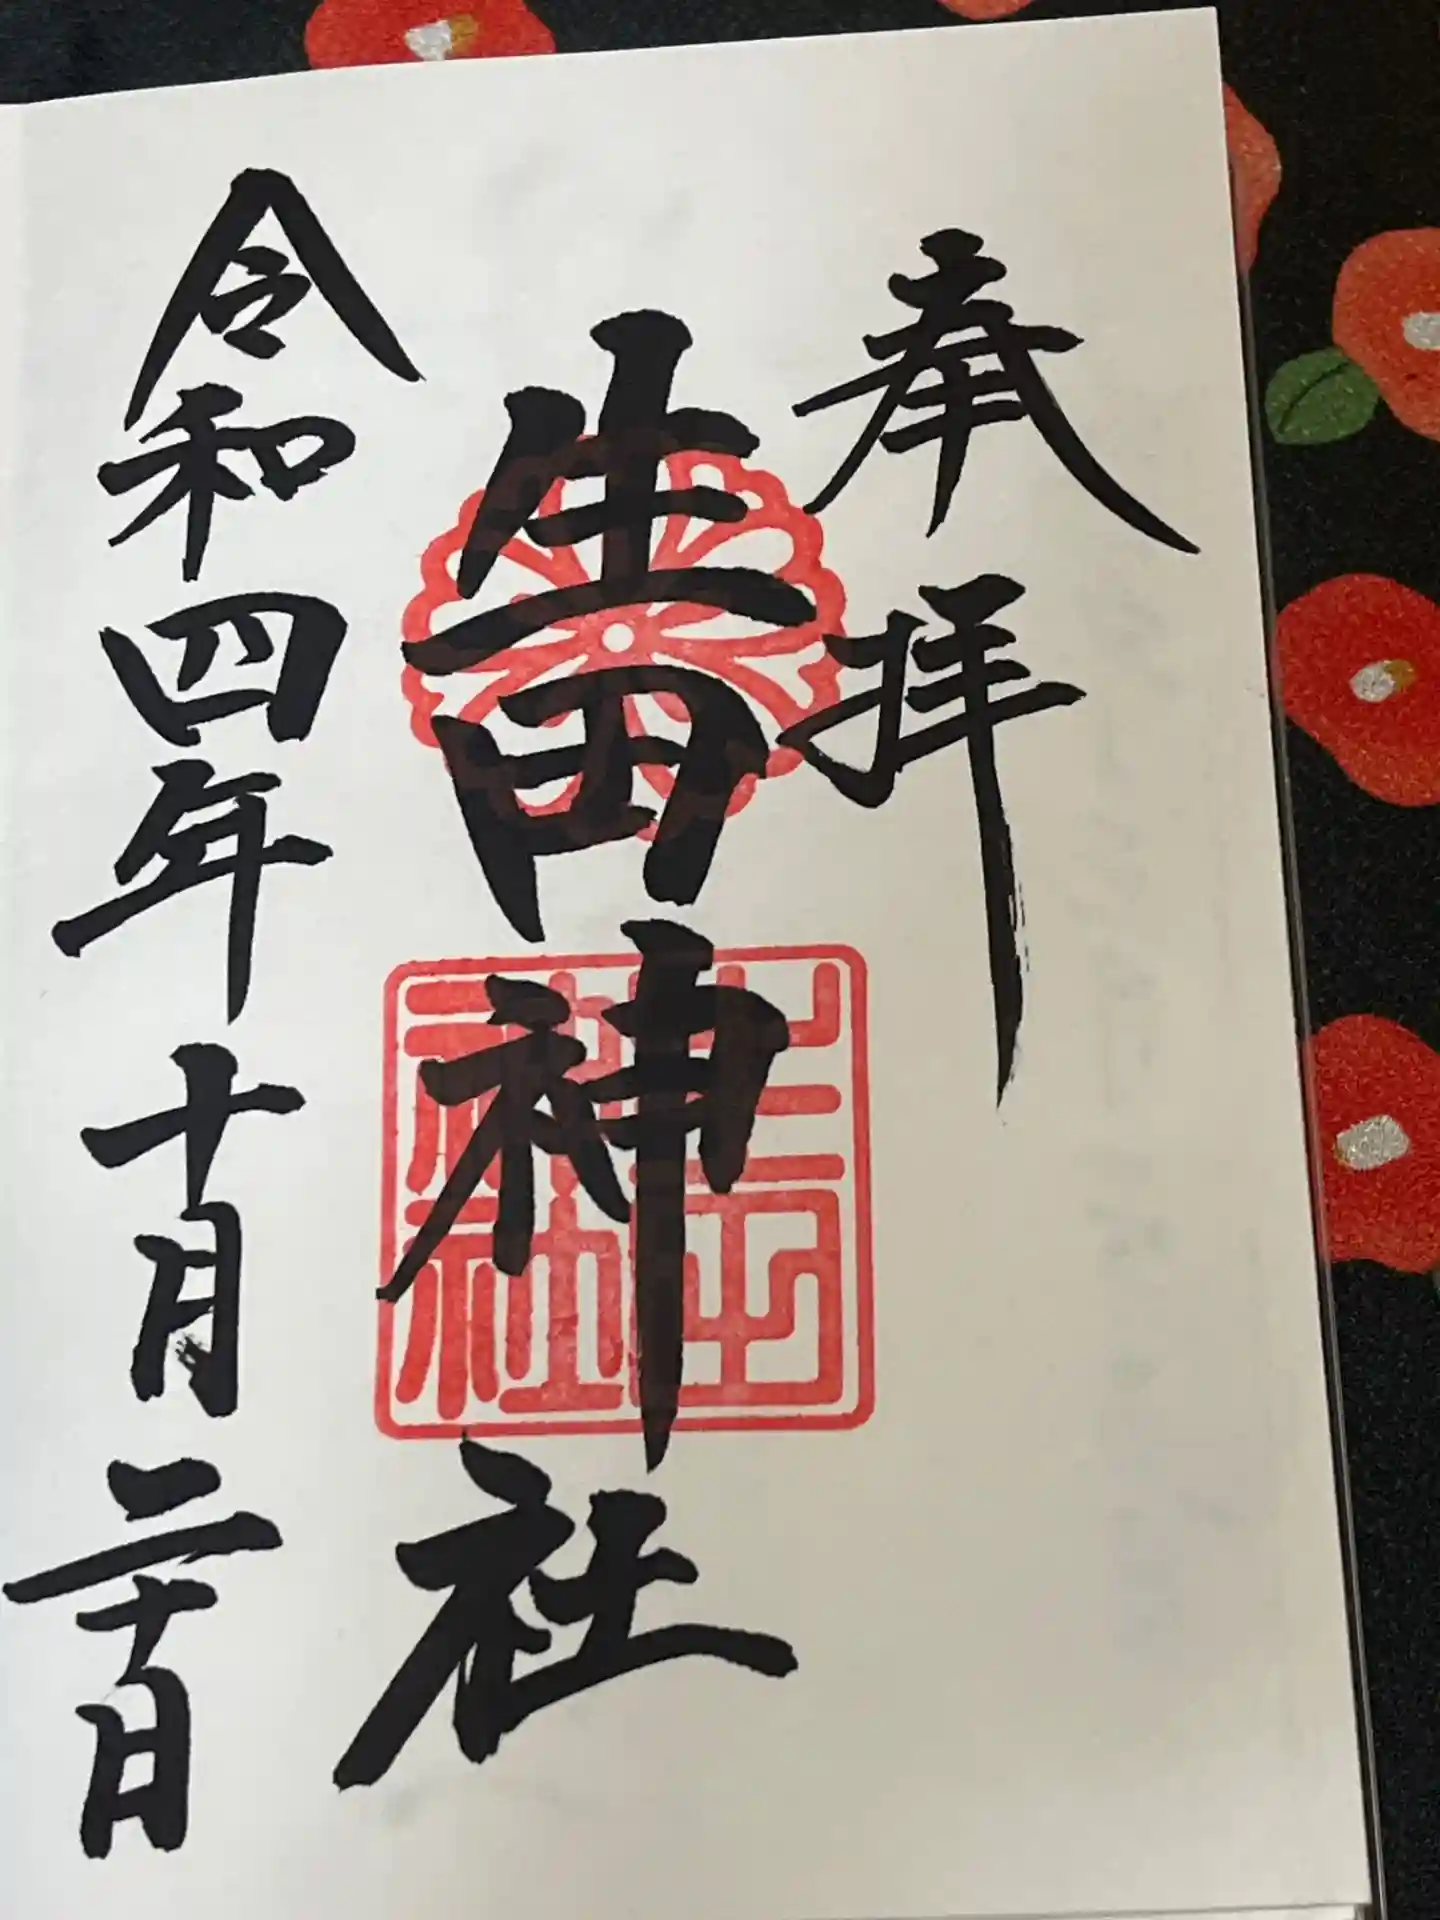 奉拝
生田神社
生田神社
令和四年十月二十日